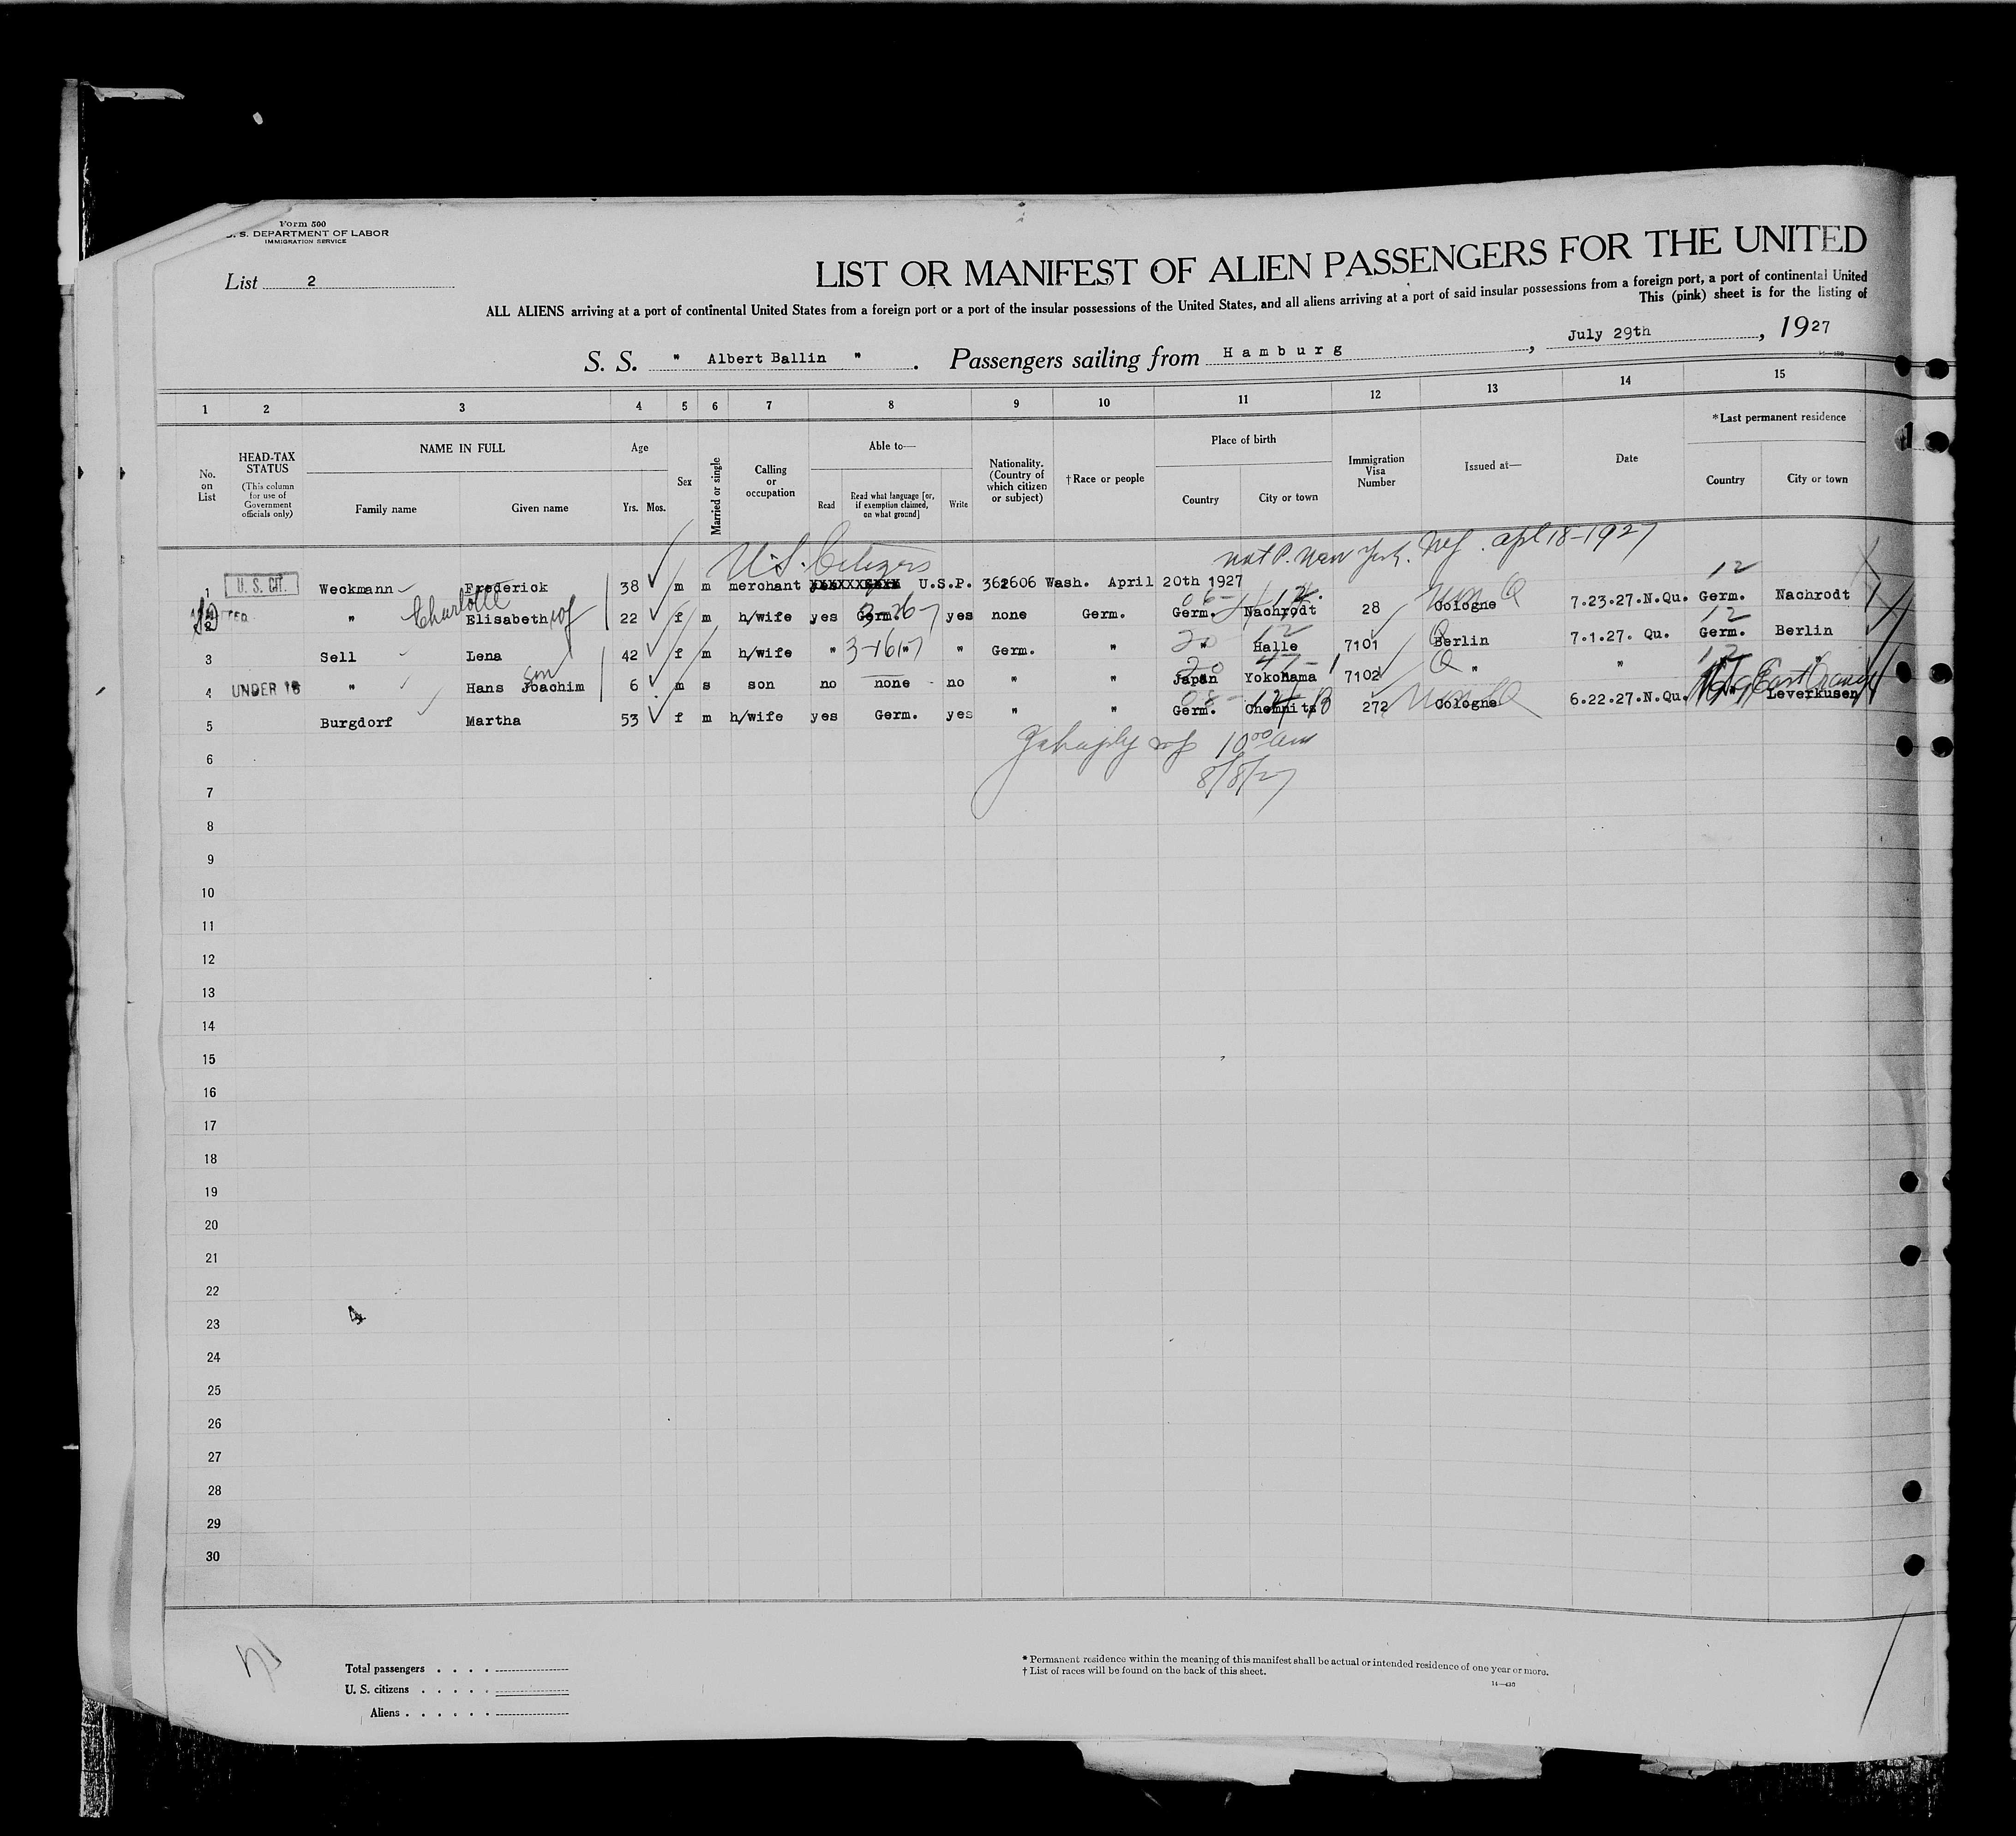 Form 500
U. S. DEPARTMENT OF LABOR
IMMIGRATION SERVICE
List 2
LIST OR MANIFEST OF ALIEN PASSENGERS FOR THE UNITED
ALL ALIENS arriving at a port of continental United States from a foreign port or a port of the insular possessions of the United States, and all aliens arriving at a port of said insular possessions from a foreign port, a port of continental United
This (pink) sheet is for the listing of
S. S. " Albert Ballin " . Passengers sailing from Hamburg , July 29th , 1927
1 2 3 4 5 6 7 8 9 10 11 12 13 14 15
No. on List
HEAD-TAX STATUS
(This column for use of Government officials only)
NAME IN FULL
Family name Given name
Age
Yrs. Mos.
Sex
Married or single
Calling or occupation
Able to—
Read
Read what language [or, if exemption claimed, on what ground]
Write
Nationality. (Country of which citizen or subject)
†Race or people
Place of birth
Country City or town
Immigration Visa Number
Issued at—
Date
*Last permanent residence
Country City or town
U.S. Citizens
nat P. New York. NY. apl 18-1927
1 U. S. CIT. Weckmann Frederick 38 m m merchant U.S.P. 362606 Wash. April 20th 1927 12
2 " Charlotte Elisabeth wf 22 f m h/wife yes Germ. yes none Germ. Germ. Nachrodt 28 Cologne 7.23.27.N.Qu. Germ. Nachrodt
3 Sell Lena 42 f m h/wife " " " Germ. " " Halle 7101 Berlin 7.1.27. Qu. Germ. Berlin
4 UNDER 16 " Hans Joachim son 6 m s son no none no " " Japan Yokohama 7102 " " "
5 Burgdorf Martha 53 f m h/wife yes Germ. yes " " Germ. Chemnitz 272 Cologne 6.22.27.N.Qu. Leverkusen East Orange
10 00 am
8/8/27
6
7
8
9
10
11
12
13
14
15
16
17
18
19
20
21
22
23
24
25
26
27
28
29
30
Total passengers . . . .
U. S. citizens . . . . .
Aliens . . . . . .
* Permanent residence within the meaning of this manifest shall be actual or intended residence of one year or more.
† List of races will be found on the back of this sheet.
14—430